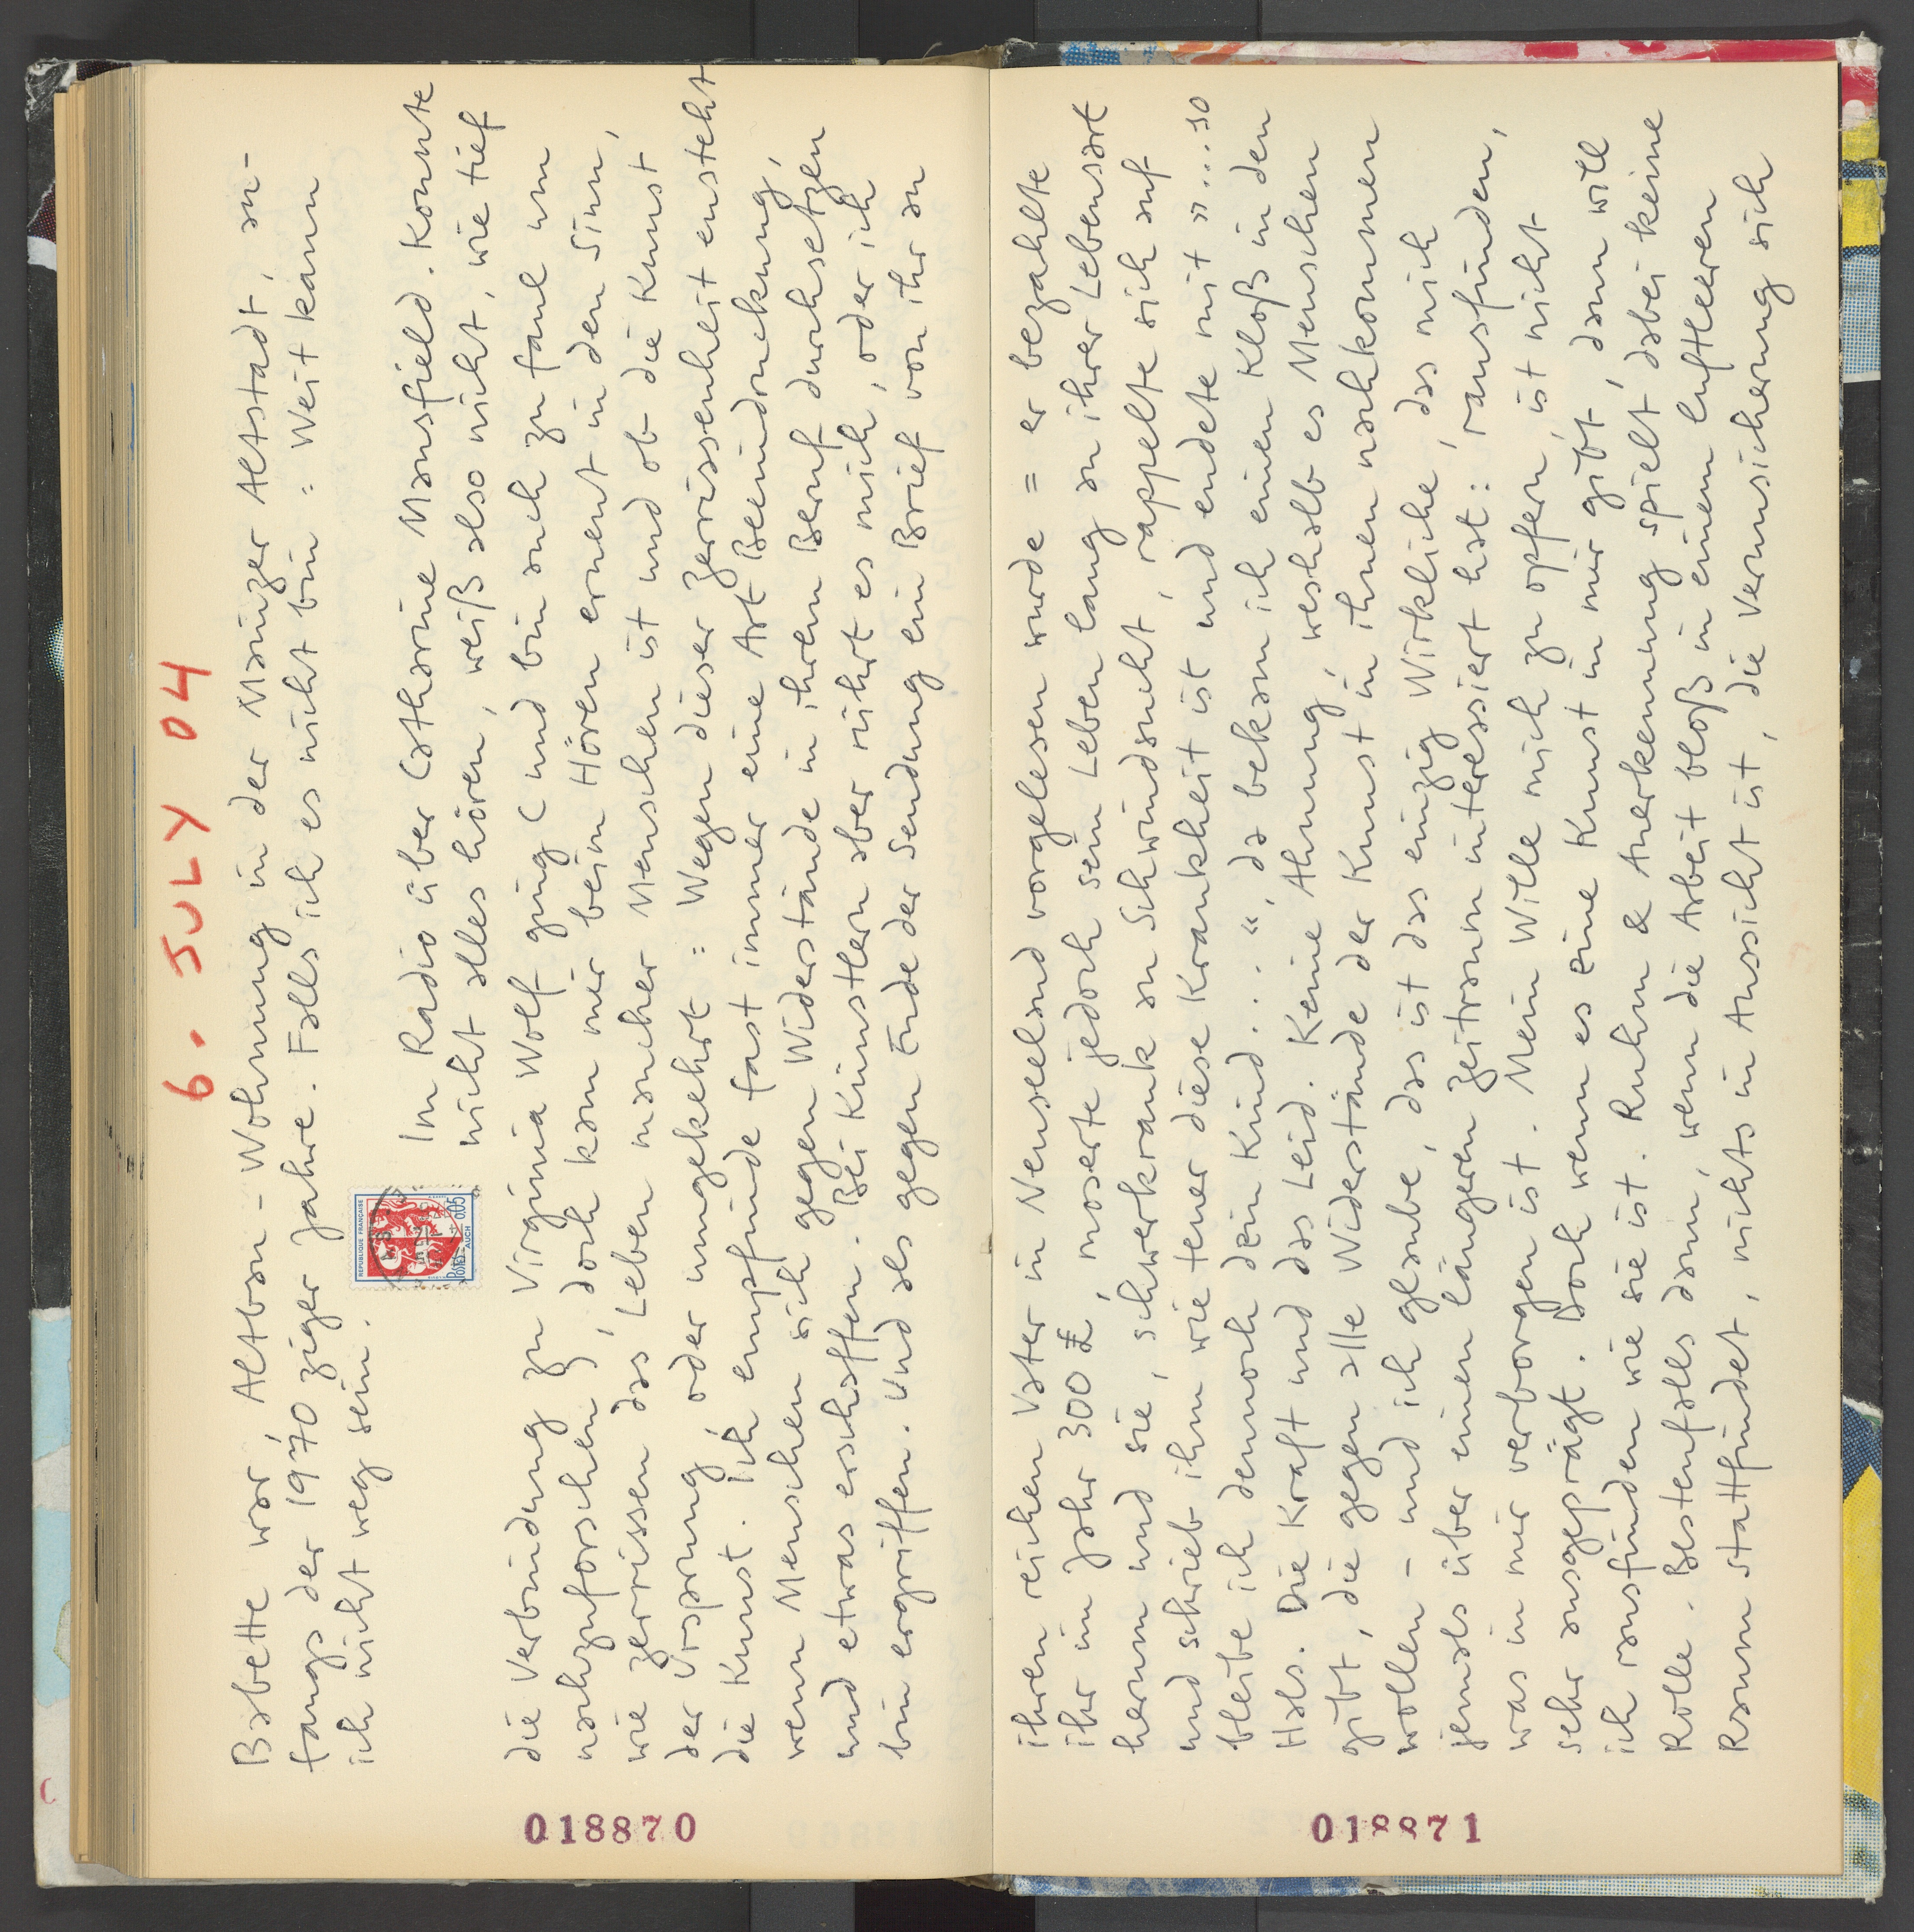 6. JULY 04
Babette war, Altbau-Wohnung in der Mainzer Altstadt, an-
fangs der 1970ziger Jahre. Falls ich es nicht bin = Weit kann
ich nicht weg sein.
REPUBLIQUE FRANCAISE
POSTES 0,05
AUCH
Im Radio über Catharine Mansfield. Konnte
nicht alles hören, weiß also nicht, wie tief
die Verbindung zu Virginia Wolf ging (und bin auch zu faul um
nachzuforschen), doch kam mir beim Hören erneut in den Sinn,
wie zerrissen das Leben mancher Menschen ist und ob die Kunst
der Ursprung, oder umgekehrt = Wegen dieser Zerrissenheit ensteht
die Kunst. Ich empfinde fast immer eine Art Beeindruckung,
wenn Menschen sich gegen Widerstände in ihrem Beruf durchsetzen
und etwas erschaffen. Bei Künstlern aber rührt es mich, oder ich
bin ergriffen. Und als gegen Ende der Sendung ein Brief von ihr an
018870
ihren reichen Vater in Neuseeland vorgelesen wurde = er bezahlte
ihr im Jahr 300 £, moserte jedoch sein Leben lang an ihrer Lebensart
herum und sie, schwerkrank an Schwindsucht, rappelte sich auf
und schrieb ihm wie teuer diese Krankheit ist und endete mit »...so
bleibe ich dennoch dein Kind...“, da bekam ich einen Kloß in den
Hals. Die Kraft und das Leid. Keine Ahnung, weshalb es Menschen
gibt, die gegen alle Widerstände der Kunst in ihnen nachkommen
wollen - und ich glaube, das ist das einzig Wirkliche, das mich
jemals über einen längeren Zeitraum interessiert hat: rausfinden,
was in mir verborgen ist. Mein Wille mich zu opfern, ist nicht
sehr ausgeprägt. Doch wenn es eine Kunst in mir gibt, dann will
ich rausfinden wie sie ist. Ruhm & Anerkennung spielt dabei keine
Rolle. Bestenfalls dann, wenn die Arbeit bloß in einem luftleeren
Raum stattfindet, nichts in Aussicht ist, die Verunsicherung sich
018871